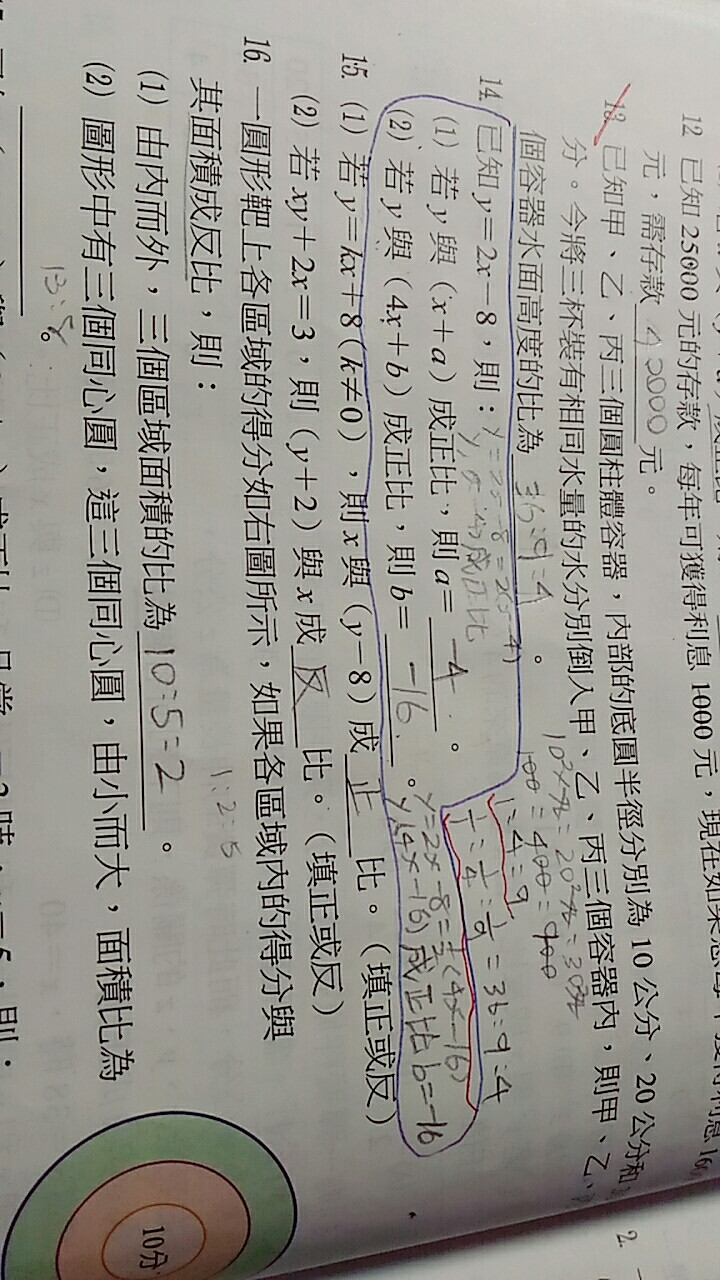 12 已知 25000 元的存款，每年可獲得利息 1000 元，現在如果想每年獲得利息
元，需存款 42000 元。
13. 已知甲、乙、丙三個圓柱體容器，內部的底圓半徑分別為 10 公分、20 公分和
分。今將三杯裝有相同水量的水分別倒入甲、乙、丙三個容器內，則甲、乙、
個容器水面高度的比為 36:9:4 。
10²π:20²π:30²π
100:400:900
1:4:9
1/1:1/4:1/9=36:9:4
14. 已知 y=2x-8，則：
y=2x-8=2(x-4)
(1) 若 y 與 (x+a) 成正比，則 a= -4 。
(2) 若 y 與 (4x+b) 成正比，則 b= -16 。
y=2x-8=½(4x-16)
y,(4x-16)成正比 b=-16
15. (1) 若 y=kx+8 (k≠0)，則 x 與 (y-8) 成 正 比。(填正或反)
(2) 若 xy+2x=3，則 (y+2) 與 x 成 反 比。(填正或反)
16. 一圓形靶上各區域的得分如右圖所示，如果各區域內的得分與
其面積成反比，則：
1:2:5
(1) 由內而外，三個區域面積的比為 10:5:2 。
(2) 圖形中有三個同心圓，這三個同心圓，由小而大，面積比為
13:8 。
10分
2.